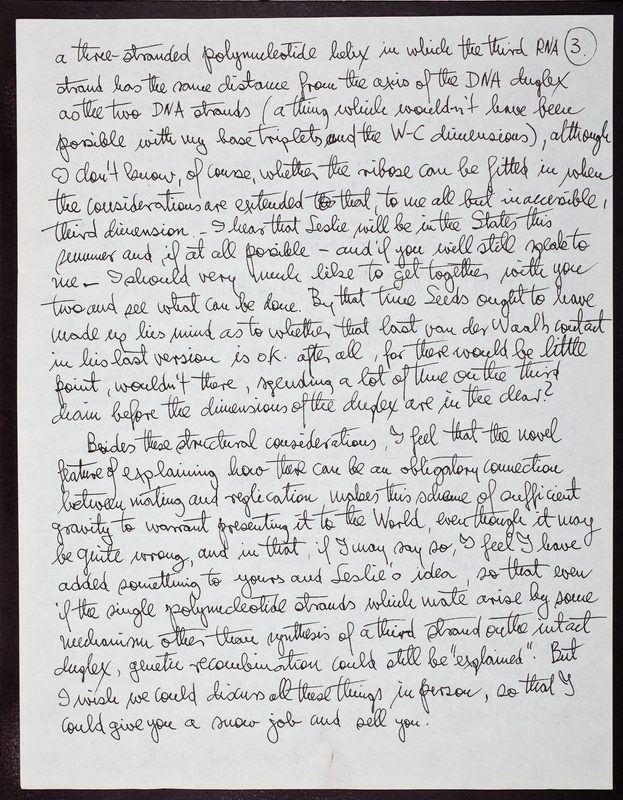 a three-stranded polynucleotide helix in which the third RNA 3.
strand has the same distance from the axis of the DNA duplex
as the two DNA strands (a thing which wouldn't have been
possible with my base triplets and the W-C dimensions), although
I don't know, of course, whether the ribose can be fitted in when
the considerations are extended to that, to me all but inaccessible,
third dimension. - I hear that Leslie will be in the States this
summer and if at all possible - and if you will still speak to
me - I should very much like to get together with you
two and see what can be done. By that time Seeds ought to have
made up his mind as to whether that last van der Waals contact
in his last version is o.k. after all, for there would be little
point, wouldn't there, spending a lot of time on the third
chain before the dimensions of the duplex are in the clear?
Besides these structural considerations, I feel that the novel
feature of explaining how there can be an obligatory connection
between mating and replication makes this scheme of sufficient
gravity to warrant presenting it to the World, even though it may
be quite wrong, and in that, if I may say so, I feel I have
added something to yours and Leslie's idea, so that even
if the single polynucleotide strands which mate arise by some
mechanism other than synthesis of a third strand on the intact
duplex, genetic recombination could still be "explained". But
I wish we could discuss all these things in person, so that I
could give you a snow job and sell you.